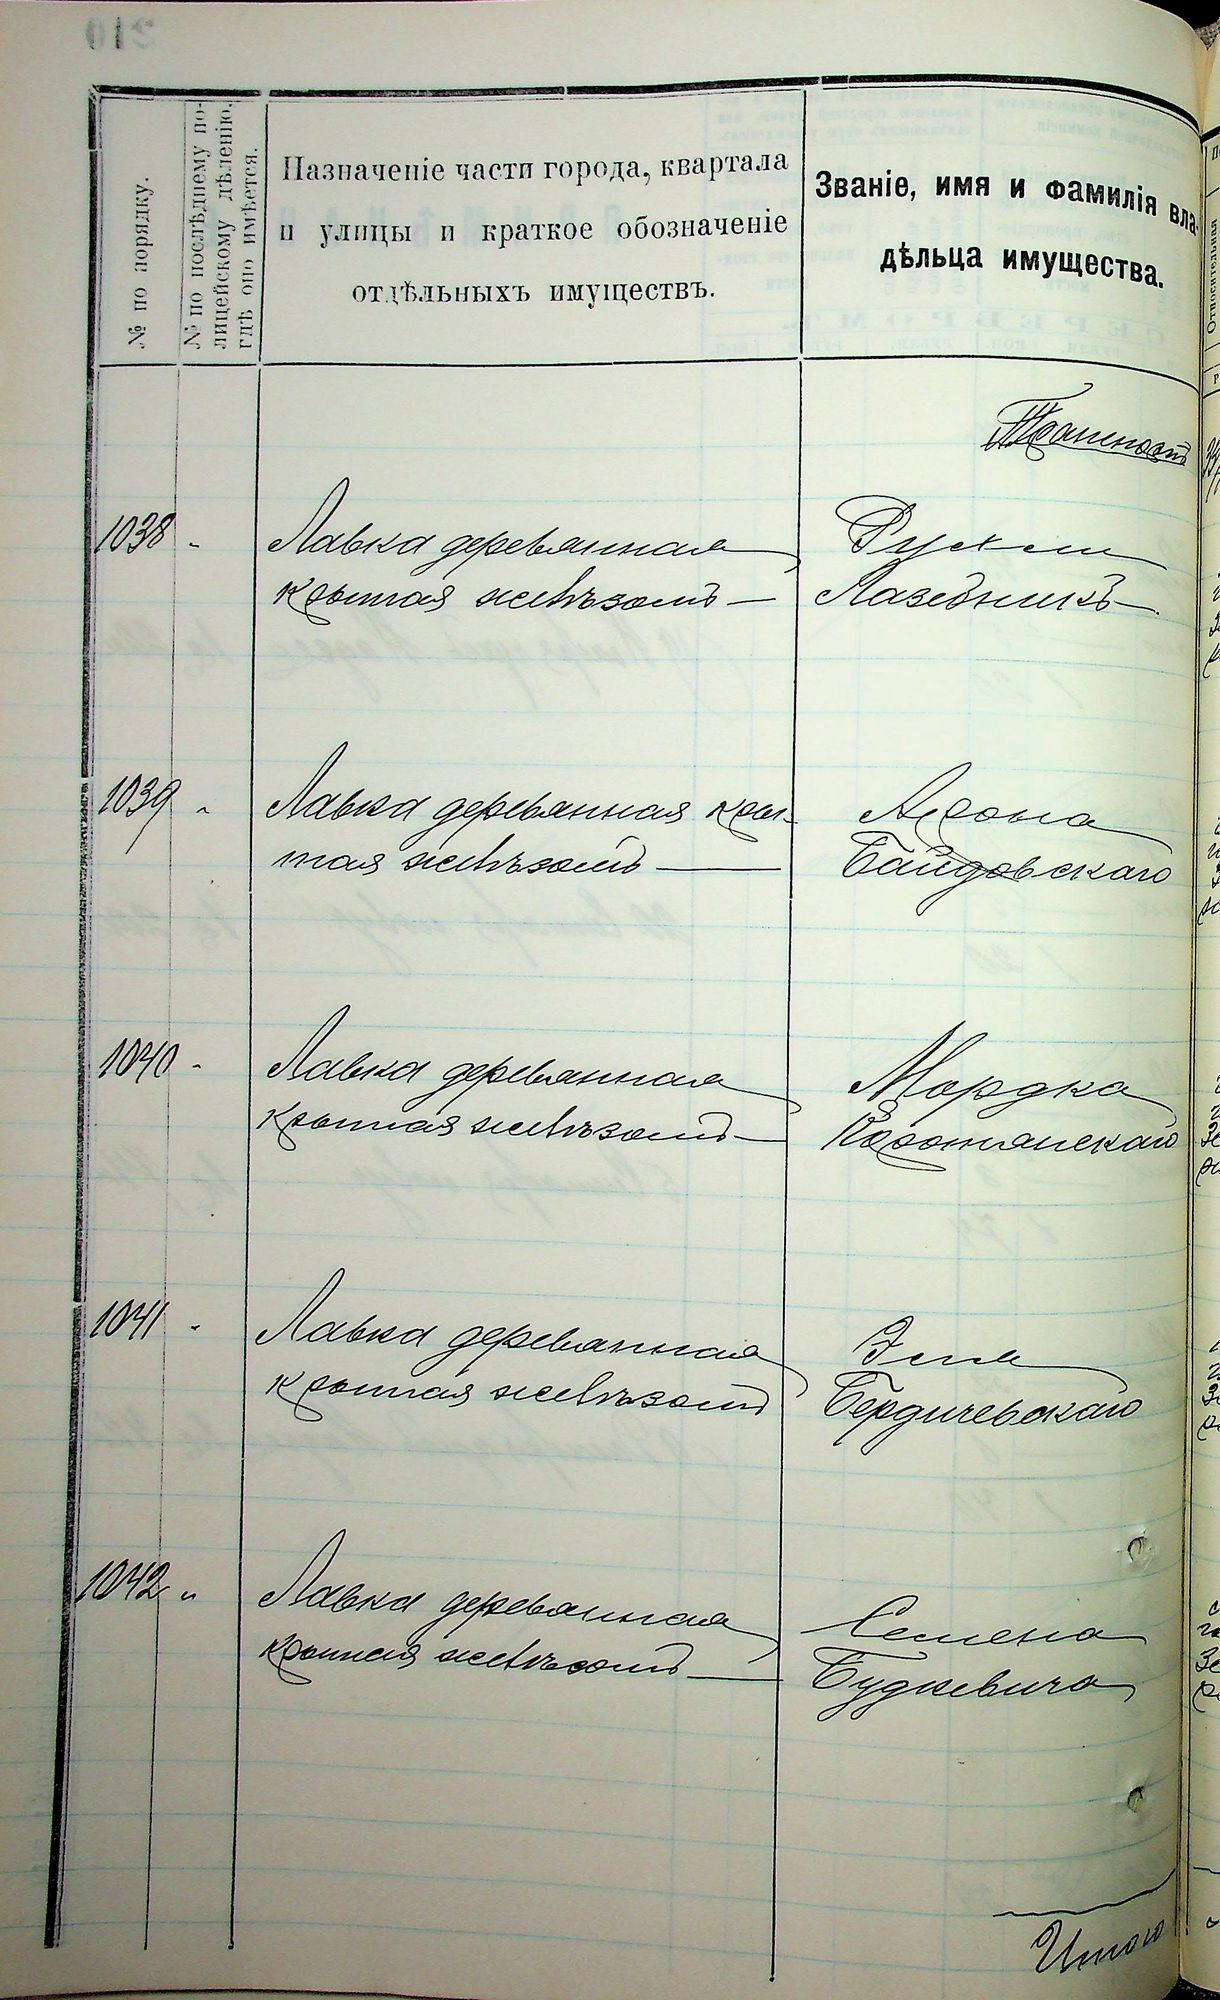 210
№ по порядку.
№ по послѣднему по-
лицейскому дѣленію,
гдѣ оно имѣется.
Назначеніе части города, квартала
и улицы и краткое обозначеніе
отдѣльныхъ имуществъ.
Званіе, имя и фамилія вла-
дѣльца имущества.
Транспортъ
1038 -
Лавка деревянная
крытая желѣзомъ —
Рухли
Лазебникъ
1039 -
Лавка деревянная кры-
тая желѣзомъ —
Арона
Байдовскаго
1040 -
Лавка деревянная
крытая желѣзомъ —
Мордка
Коростянскаго
1041 -
Лавка деревянная
крытая желѣзомъ
Эля
Бердичевскаго
1042 "
Лавка деревянная
крытая желѣзомъ —
Семена
Будкевича
Итого